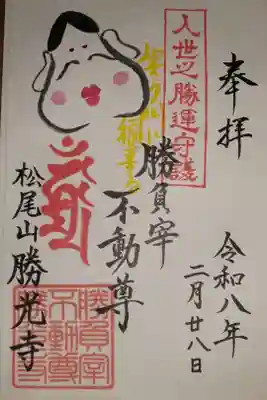 奉拝
令和八年
二月廿八日
人世之勝運守護
勝負宰
不動尊
松尾山勝光寺
勝負宰
不動尊